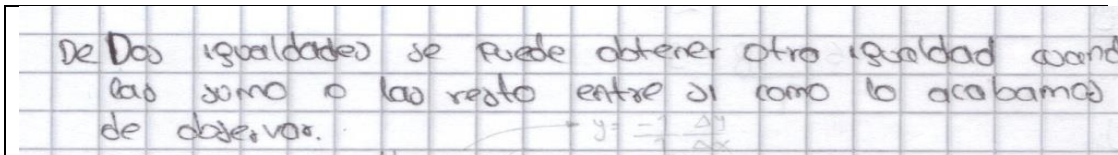 De Dos igualdades se puede obtener otra igualdad cuand
las sumo o las resto entre si como lo acabamos
de observar.